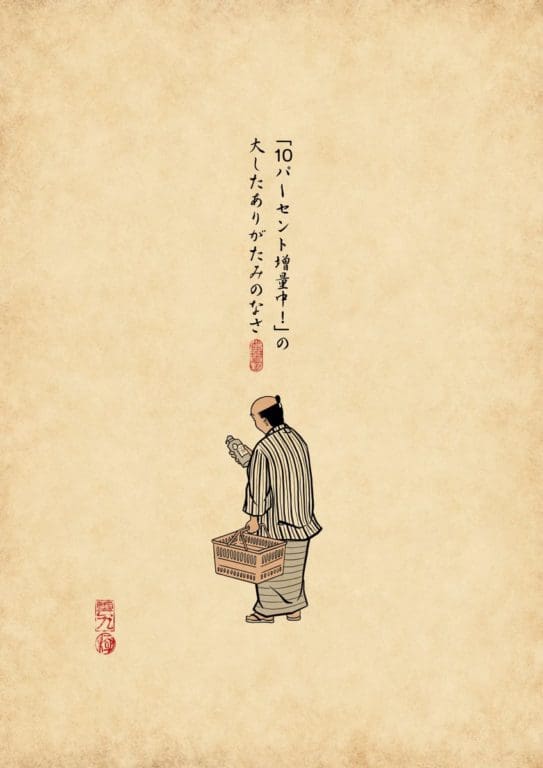 「10パーセント増量中！」の
大したありがたみのなさ